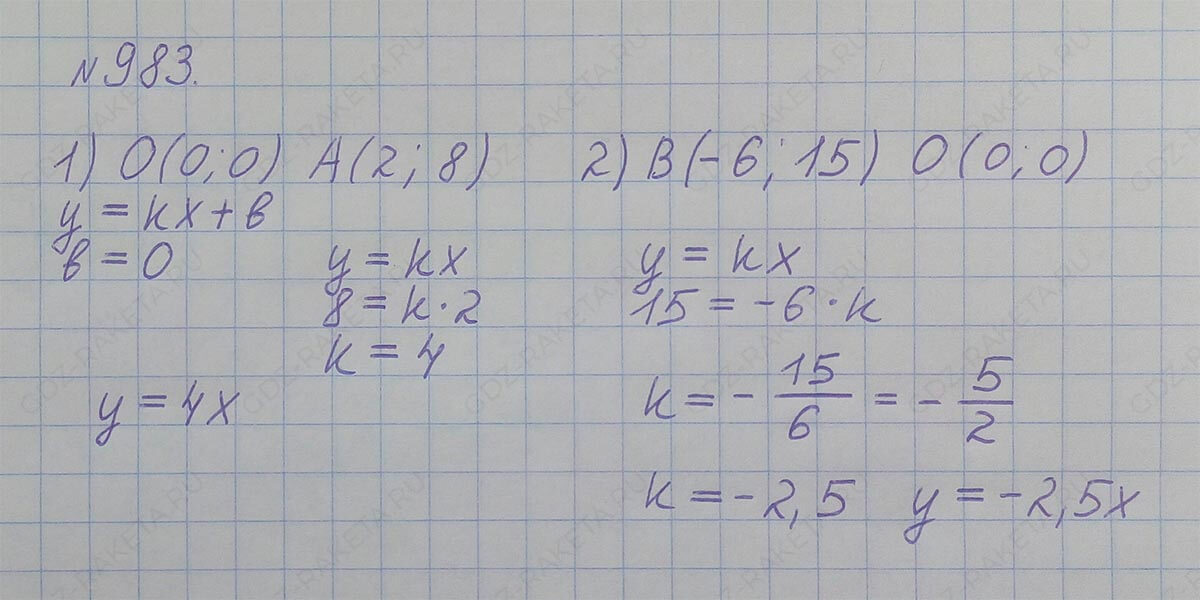 №983.
1) O(0;0) A(2;8)
y = kx + в
в = 0
y = kx
8 = k·2
k = 4
y = 4x
2) B(-6;15) O(0;0)
y = kx
15 = -6·k
k = - 15/6 = - 5/2
k = -2,5 y = -2,5x
GDZ-RAKETA.RU